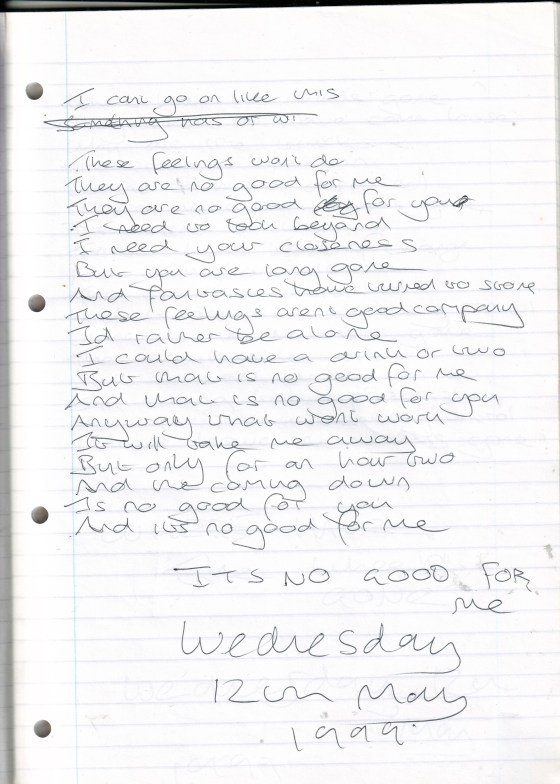 I cant go on like this
Something has or wi
These feelings wont do
They are no good for me
They are no good for you
I need to look beyond
I need your closeness
But you are long gone
And fantasies have turned to stone
These feelings arent good company
Id rather be alone
I could have a drink or two
But that is no good for me
And that is no good for you
Anyway that wont work
It will take me away
But only for an hour two
And the coming down
Is no good for you
And its no good for me
ITS NO GOOD FOR
me
Wednesday
12th May
1999